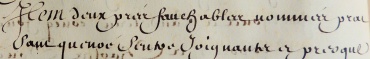 Item deux prez fauchables nommez prae
Sauquenoé Seutoe Joignants er presque